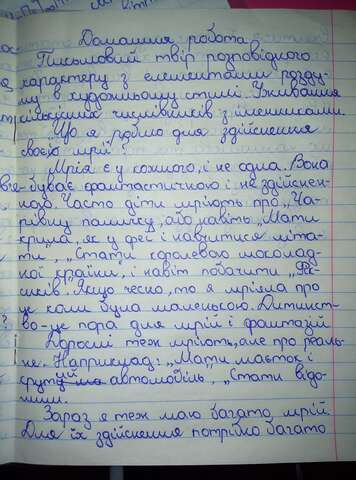 Домашня робота
Письмовий твір розповідного
характеру з елементами розду-
му в художньому стилі. Уживання
кількісних числівників з іменниками.
Що я роблю для здійснення
своєї мрії?
Мрія є у кожного, і не одна. Вона
буває фантастичною і не здійснен-
ною. Часто діти мріють про „Ча-
рівну паличку", або навіть „Мати
крила, як у феї і навчитися літа-
ти", „Стати королевою шоколад-
ної країни", і навіт побачити
Якщо чесно, то я мріяла про
це коли була маленькою. Дитинст-
во-це пора для мрій і фантазій
Дорослі теж мріють, але про реаль-
не. Наприклад: „Мати маєток і
крутий автомобіль", „Стати відо-
мим".
Зараз я теж маю багато мрій.
Для їх здійснення потрібно багато